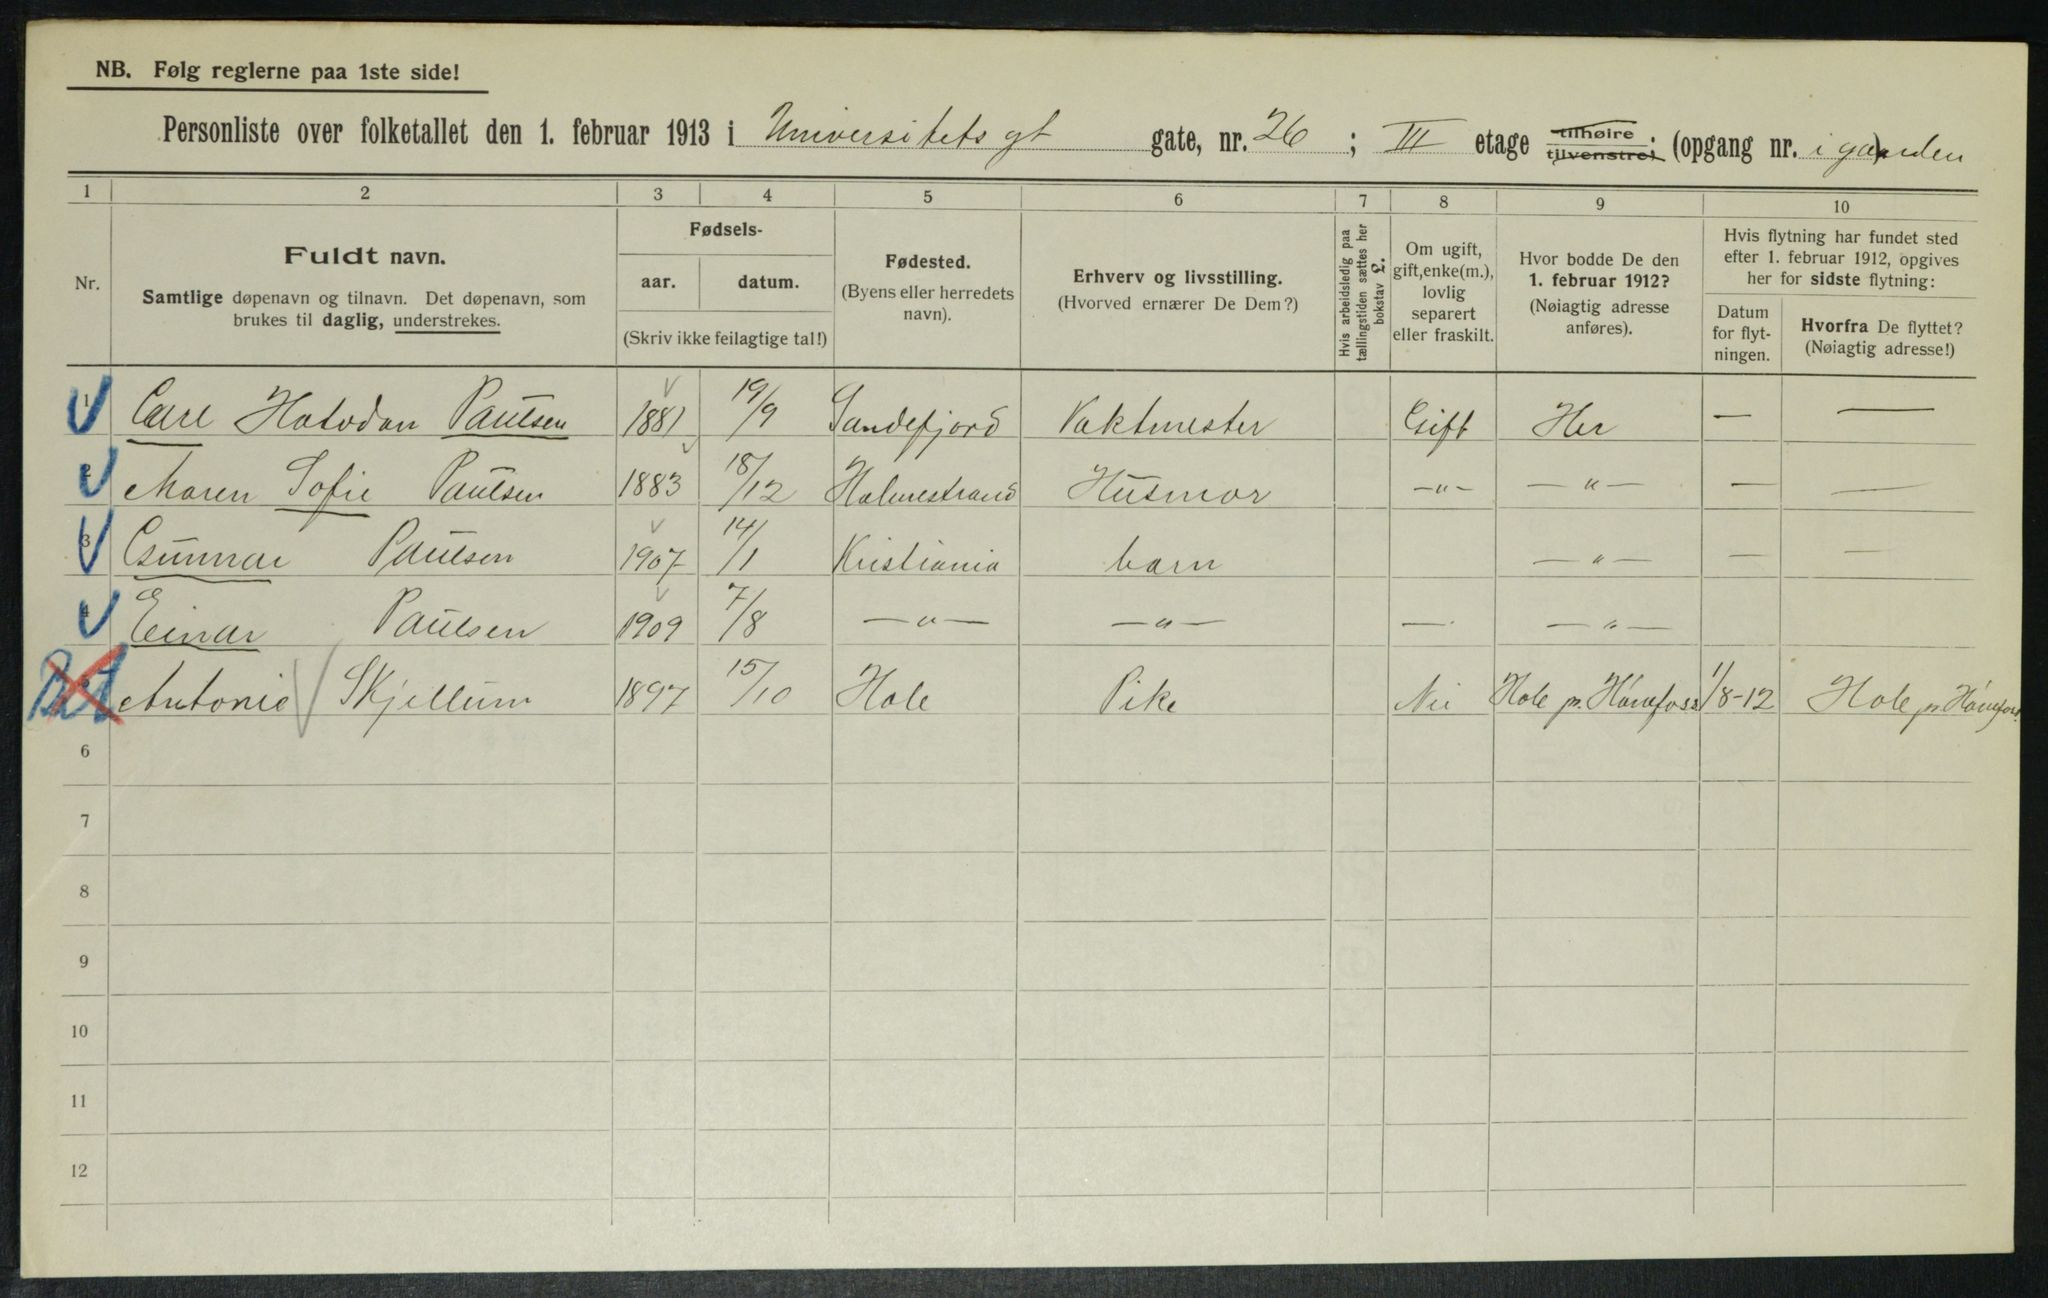 NB. Følg reglerne paa 1ste side!
Personliste over folketallet den 1. februar 1913 i Universitets gt gate, nr. 26 ; III etage tilhøire tilvenstre; (opgang nr. i gaarden
1 2 3 4 5 6 7 8 9 10
Nr.
Fuldt navn.
Samtlige døpenavn og tilnavn. Det døpenavn, som
brukes til daglig, understrekes.
Fødsels-
aar. datum.
(Skriv ikke feilagtige tal!)
Fødested.
(Byens eller herredets
navn).
Erhverv og livsstilling.
(Hvorved ernærer De Dem?)
Hvis arbeidsledig paa
tællingstiden sættes her
bokstav L.
Om ugift,
gift, enke(m.),
lovlig
separert
eller fraskilt.
Hvor bodde De den
1. februar 1912?
(Nøiagtig adresse
anføres).
Hvis flytning har fundet sted
efter 1. februar 1912, opgives
her for sidste flytning:
Datum
for flyt-
ningen.
Hvorfra De flyttet?
(Nøiagtig adresse!)
1 Carl Paulsen 1881 19/9 Sandefjord Vaktmester Gift Her — —
2 Maren Sofie Paulsen 1883 18/12 Holmestrand Husmor —"— —"— — —
3 Gunnar Paulsen 1907 14/1 Kristiania barn —"— — —
4 Einar Paulsen 1909 7/8 —"— —"— — —"—
Antonie Skjellum 1897 15/10 Hole Pike Nei Hole pr. Hönefoss 1/8-12 Hole pr. Hönefoss
6
7
8
9
10
11
12